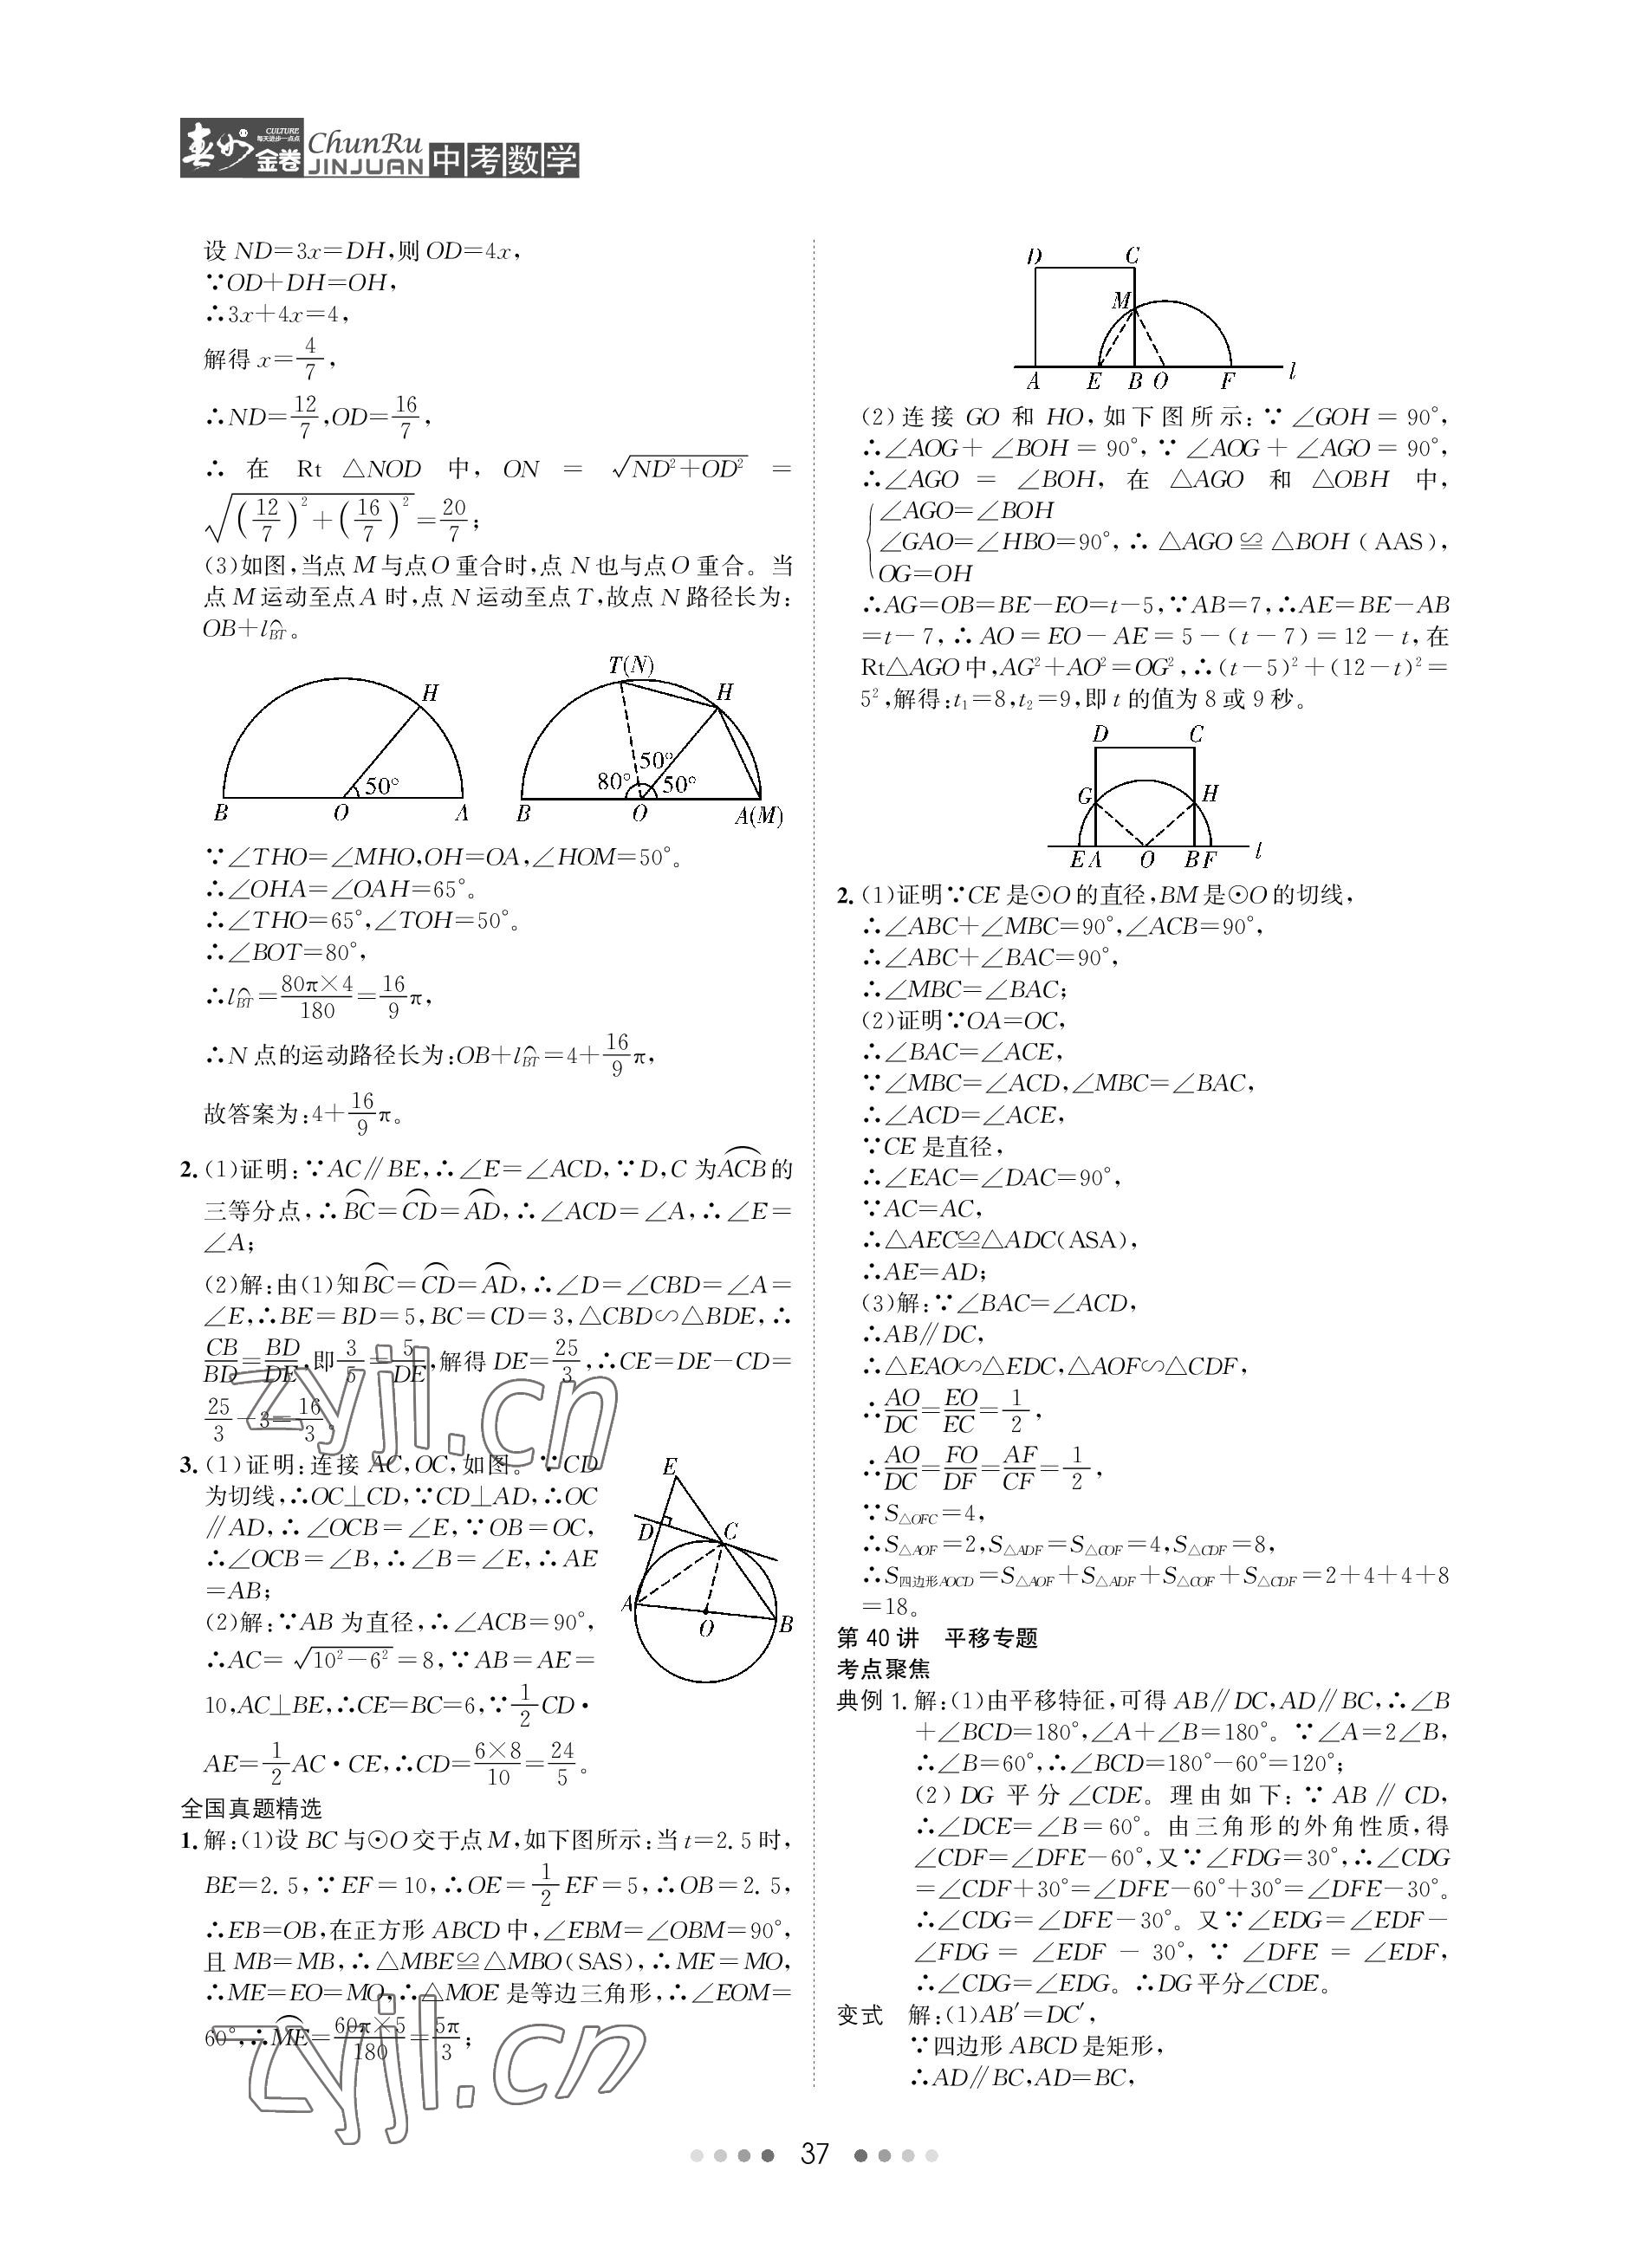 春如金卷 CULTURE 每天进步一点点 ChunRu JINJUAN 中考数学
设 ND=3x=DH,则 OD=4x,
∵OD+DH=OH,
∴3x+4x=4,
解得 x=4/7,
∴ND=12/7,OD=16/7,
∴ 在 Rt △NOD 中, ON = √(ND²+OD²) =
√((12/7)²+(16/7)²)=20/7;
(3)如图,当点 M 与点 O 重合时,点 N 也与点 O 重合。当
点 M 运动至点 A 时,点 N 运动至点 T,故点 N 路径长为:
OB+l⌒BT。
H
50°
B O A
T(N)
H
50°
80° 50°
B O A(M)
∵∠THO=∠MHO,OH=OA,∠HOM=50°。
∴∠OHA=∠OAH=65°。
∴∠THO=65°,∠TOH=50°。
∴∠BOT=80°,
∴l⌒BT=80π×4/180=16/9π,
∴N 点的运动路径长为:OB+l⌒BT=4+16/9π,
故答案为:4+16/9π。
2.(1)证明:∵AC∥BE,∴∠E=∠ACD,∵D,C 为⌒ACB的
三等分点,∴⌒BC=⌒CD=⌒AD,∴∠ACD=∠A,∴∠E=
∠A;
(2)解:由(1)知⌒BC=⌒CD=⌒AD,∴∠D=∠CBD=∠A=
∠E,∴BE=BD=5,BC=CD=3,△CBD∽△BDE,∴
CB/BD=BD/DE,即3/5=5/DE,解得 DE=25/3,∴CE=DE-CD=
25/3-3=16/3。
3.(1)证明:连接 AC,OC,如图。∵CD
为切线,∴OC⊥CD,∵CD⊥AD,∴OC
∥AD,∴∠OCB=∠E,∵OB=OC,
∴∠OCB=∠B,∴∠B=∠E,∴AE
=AB;
(2)解:∵AB 为直径,∴∠ACB=90°,
∴AC=√(10²-6²)=8,∵AB=AE=
10,AC⊥BE,∴CE=BC=6,∵1/2CD·
AE=1/2AC·CE,∴CD=6×8/10=24/5。
E
D C
A O B
全国真题精选
1.解:(1)设 BC 与⊙O 交于点 M,如下图所示:当 t=2.5 时,
BE=2.5,∵EF=10,∴OE=1/2EF=5,∴OB=2.5,
∴EB=OB,在正方形 ABCD 中,∠EBM=∠OBM=90°,
且 MB=MB,∴△MBE≌△MBO(SAS),∴ME=MO,
∴ME=EO=MO,∴△MOE 是等边三角形,∴∠EOM=
60°,∴⌒ME=60π×5/180=5π/3;
zyjl.cn
zyjl.cn
D C
M
A E B O F l
(2)连接 GO 和 HO,如下图所示:∵∠GOH=90°,
∴∠AOG+∠BOH=90°,∵∠AOG+∠AGO=90°,
∴∠AGO=∠BOH,在△AGO 和△OBH 中,
{∠AGO=∠BOH
∠GAO=∠HBO=90°,∴△AGO≌△BOH(AAS),
OG=OH
∴AG=OB=BE-EO=t-5,∵AB=7,∴AE=BE-AB
=t-7,∴AO=EO-AE=5-(t-7)=12-t,在
Rt△AGO 中,AG²+AO²=OG²,∴(t-5)²+(12-t)²=
5²,解得:t₁=8,t₂=9,即 t 的值为 8 或 9 秒。
D C
G H
E A O B F l
2.(1)证明∵CE 是⊙O 的直径,BM 是⊙O 的切线,
∴∠ABC+∠MBC=90°,∠ACB=90°,
∴∠ABC+∠BAC=90°,
∴∠MBC=∠BAC;
(2)证明∵OA=OC,
∴∠BAC=∠ACE,
∵∠MBC=∠ACD,∠MBC=∠BAC,
∴∠ACD=∠ACE,
∵CE 是直径,
∴∠EAC=∠DAC=90°,
∵AC=AC,
∴△AEC≌△ADC(ASA),
∴AE=AD;
(3)解:∵∠BAC=∠ACD,
∴AB∥DC,
∴△EAO∽△EDC,△AOF∽△CDF,
∴AO/DC=EO/EC=1/2,
∴AO/DC=FO/DF=AF/CF=1/2,
∵S△OFC=4,
∴S△AOF=2,S△ADF=S△COF=4,S△CDF=8,
∴S四边形AOCD=S△AOF+S△ADF+S△COF+S△CDF=2+4+4+8
=18。
第 40 讲 平移专题
考点聚焦
典例 1.解:(1)由平移特征,可得 AB∥DC,AD∥BC,∴∠B
+∠BCD=180°,∠A+∠B=180°。∵∠A=2∠B,
∴∠B=60°,∴∠BCD=180°-60°=120°;
(2)DG 平分∠CDE。理由如下:∵AB∥CD,
∴∠DCE=∠B=60°。由三角形的外角性质,得
∠CDF=∠DFE-60°,又∵∠FDG=30°,∴∠CDG
=∠CDF+30°=∠DFE-60°+30°=∠DFE-30°。
∴∠CDG=∠DFE-30°。又∵∠EDG=∠EDF-
∠FDG=∠EDF-30°,∵∠DFE=∠EDF,
∴∠CDG=∠EDG。∴DG 平分∠CDE。
变式 解:(1)AB′=DC′,
∵四边形 ABCD 是矩形,
∴AD∥BC,AD=BC,
37